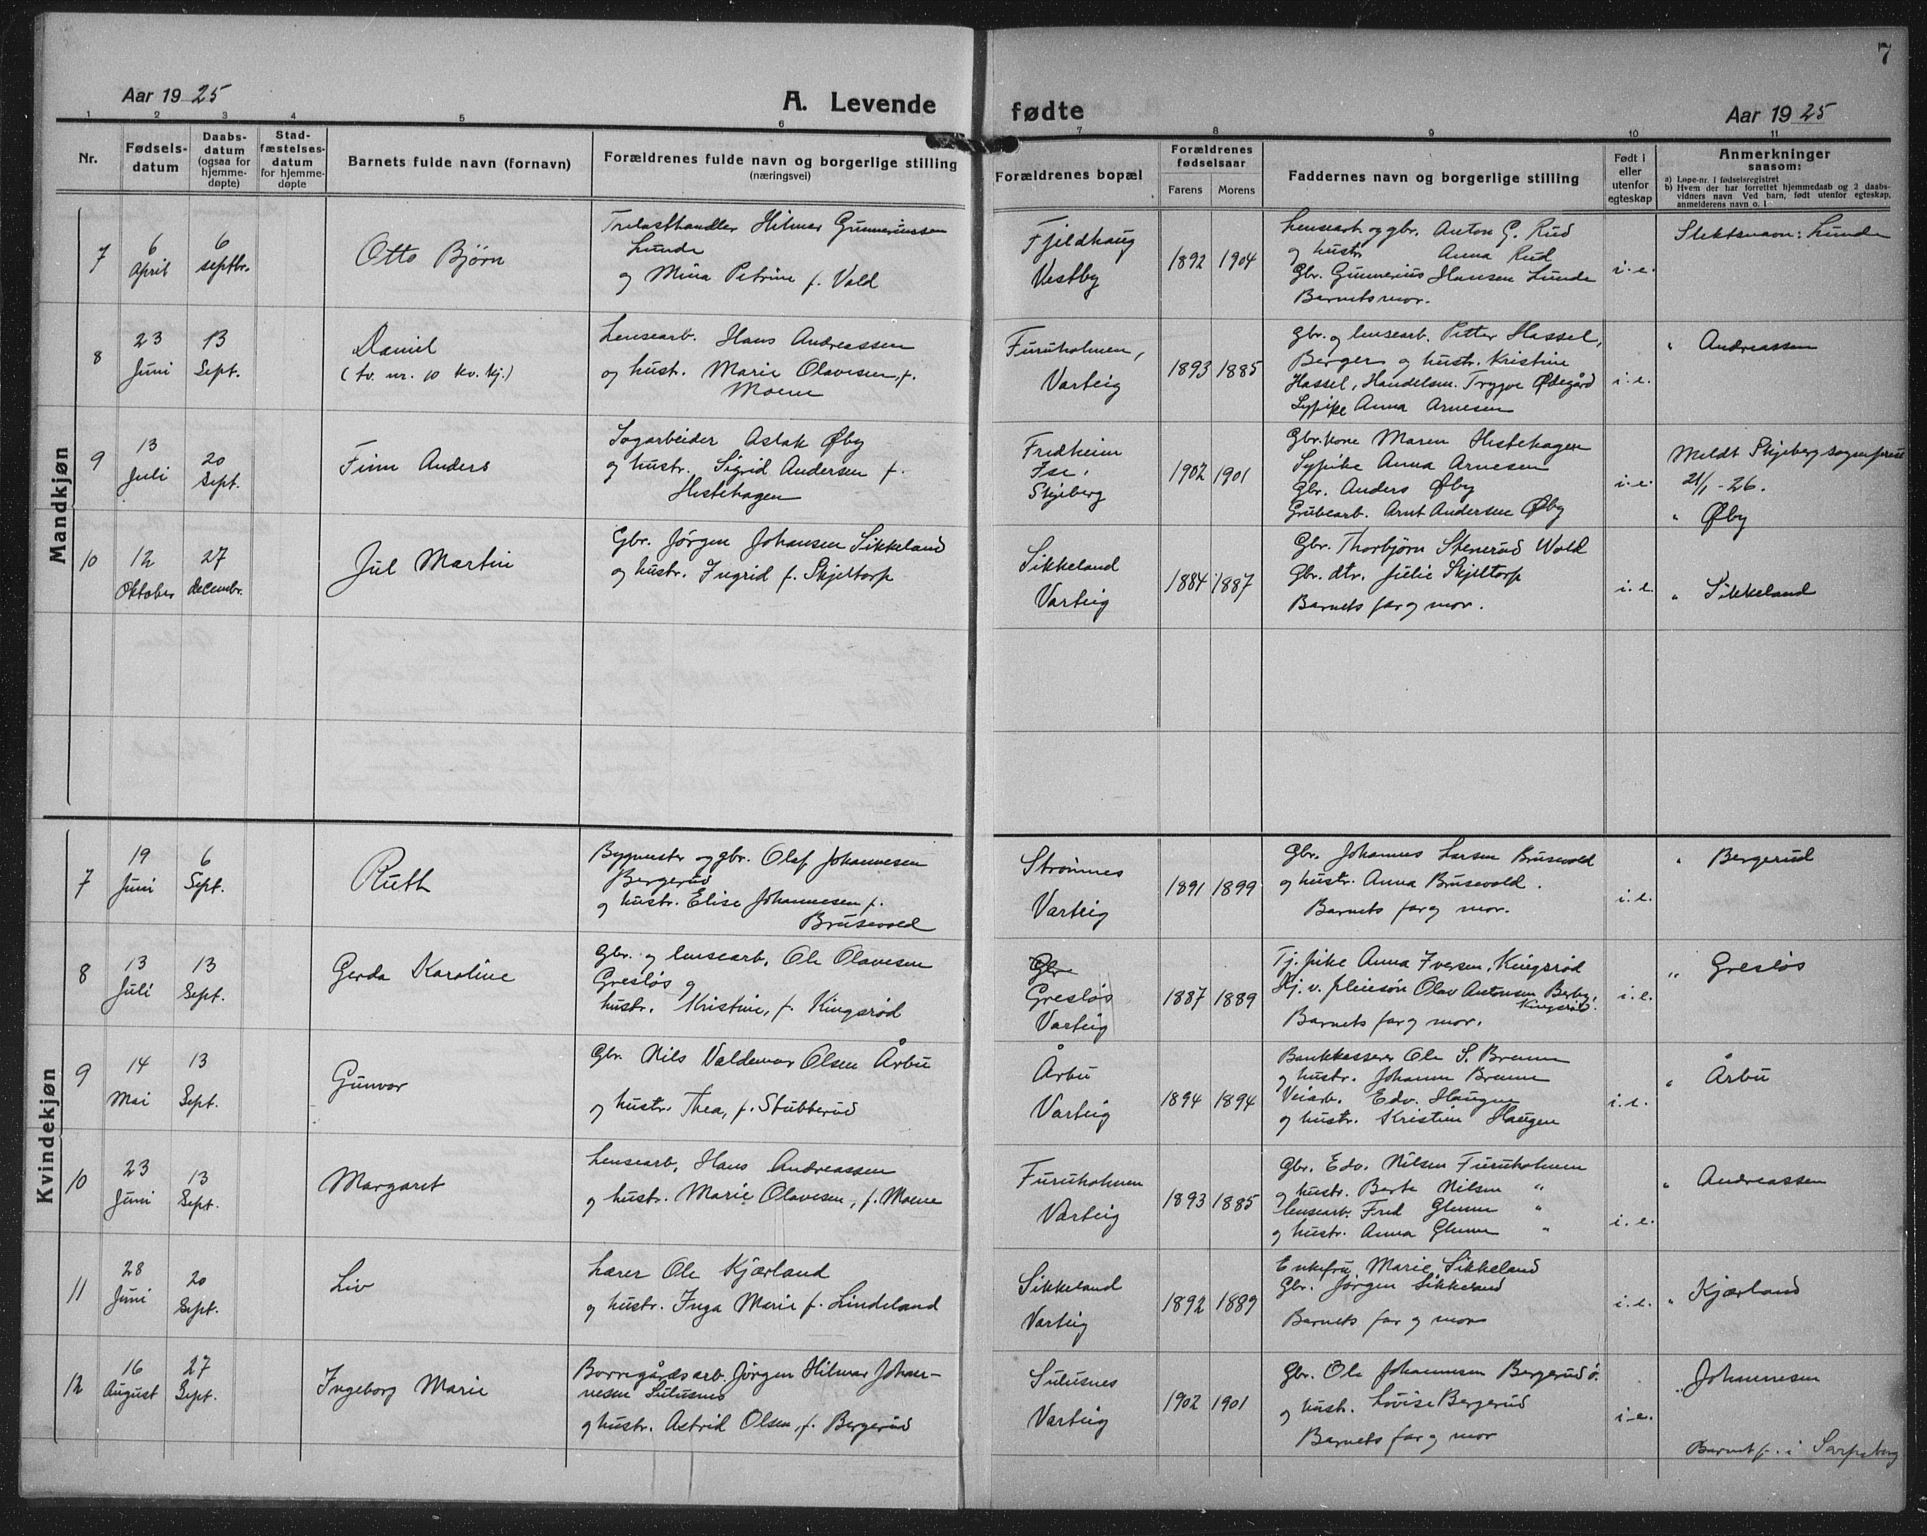 7
Aar 1925
A. Levende
fødte
Aar 1925
1 2 3 4 5 6 7 8 9 10 11
Nr.
Fødsels-
datum
Daabs-
datum
(ogsaa for
hjemme-
døpte)
Stad-
fæstelses-
datum
for hjemme-
døpte
Barnets fulde navn (fornavn)
Forældrenes fulde navn og borgerlige stilling
(næringsvei)
Forældrenes bopæl
Forældrenes
fødselsaar
Farens Morens
Faddernes navn og borgerlige stilling
Født i
eller
utenfor
egteskap
Anmerkninger
saasom:
a) Løpe-nr. i fødselsregistret
b) Hvem der har forrettet hjemmedaab og 2 daabs-
vidners navn Ved barn, født utenfor egteskap,
anmelderens navn o. l
Mandkjøn
7
6
April
6
septbr.
Otto Bjørn
Trelasthandler Hilmar Gunneriussen
Lunde
og Mina Petrine f. Vald
Fjeldhaug
Vestby
1892 1904
Lensearb. og gbr. Anton G. Rud
og hustr. Anna Rud
Gbr. Gunnerius Hansen Lunde
Barnets mor.
i. e.
Slektsnavn: Lunde
8
23
Juni
13
Sept.
Daniel
(tv. nr. 10 kv. kj.)
Lensearb. Hans Andreassen
og hustr. Marie Olavesen, f.
Moene
Furuholmen,
Varteig
1893 1885
Gbr. og lensearb. Petter Hassel,
Berger og hustr. Kristine
Hassel, Handelsm. Trygve Ødegård
Sypike Anna Arnesen
i. e.
" Andreassen
9
13
Juli
20
Sept.
Finn Anders
Sagarbeider Aslak Øby
og hustr. Sigrid Andersen f.
Hestehagen
Fredheim
Ise,
Skjeberg
1902 1901
Gbr. kone Maren Hestehagen
Sypike Anna Arnesen
Gbr. Anders Øby
Grubearb. Arnt Andersen Øby
i. e.
Meldt Skjeberg sogneprest
21/1 - 26.
" Øby
10
12
Oktober
27
decembr.
Jul Martin
Gbr. Jørgen Johansen Sikkeland
og hustr. Ingrid f. Skjeltorp
Sikkeland
Varteig
1884 1887
Gbr. Thorbjørn Stenerud Wold
Gbr. dtr. Julie Skjeltorp
Barnets far og mor.
i. e.
" Sikkeland
Kvindekjøn
7
19
Juni
6
Sept.
Ruth
Bygmester og gbr. Olaf Johannesen
Bergerud
og hustr. Elise Johannesen f.
Brusevold
Strømnes
Varteig
1891 1899
Gbr. Johannes Larsen Brusevold
og hustr. Anna Brusevold.
Barnets far og mor.
i. e.
" Bergerud
8
13
Juli
13
Sept.
Gerda Karoline
Gbr. og lensearb. Ole Olavesen
Gresløs og
hustr. Kristine, f. Kingsrød
Gbr
Gresløs
Varteig
1887 1889
Tj. pike Anna Iversen, Kingsrød
Hj. v. pleiesøn Olav Antonsen Berby,
Kingsrød.
Barnets far og mor.
i. e.
" Gresløs
9
14
Mai
13
Sept.
Gunvor
Gbr. Nils Valdemar Olsen Årbu
og hustr. Thea, f. Stubberud
Årbu
Varteig
1894 1894
Bankkasserer Ole S. Brenne
og hustr. Johanne Brenne
Veiarb. Edv. Haugen
og hustr. Kristine Haugen
i. e.
" Årbu
10
23
Juni
13
Sept.
Margaret
Lensearb. Hans Andreassen
og hustr. Marie Olavesen, f. Moene
Furuholmen
Varteig
1893 1885
Gbr. Edv. Nilsen Furuholmen
og hustr. Berte Nilsen "
lensearb. Fred Glenne "
og hustr. Anna Glenne "
i. e.
" Andreassen
11
28
Juni
20
Sept.
Liv
Lærer Ole Kjærland
og hustr. Inga Marie f. Lindeland
Sikkeland
Varteig
1892 1889
Enkefru Marie Sikkeland
Gbr. Jørgen Sikkeland
Barnets far og mor
i. e.
" Kjærland
12
16
August
27
Sept.
Ingeborg Marie
Borregårdsarb. Jørgen Hilmar Johan-
nesen Sulusnes
og hustr. Astrid Olsen, f. Bergerud
Sulusnes
Varteig
1902 1901
Gbr. Ole Johannesen Bergerud ø.
og hustr. Lovise Bergerud
Barnets far og mor
i. e.
" Johannesen
Barnet f. i Sarpsborg